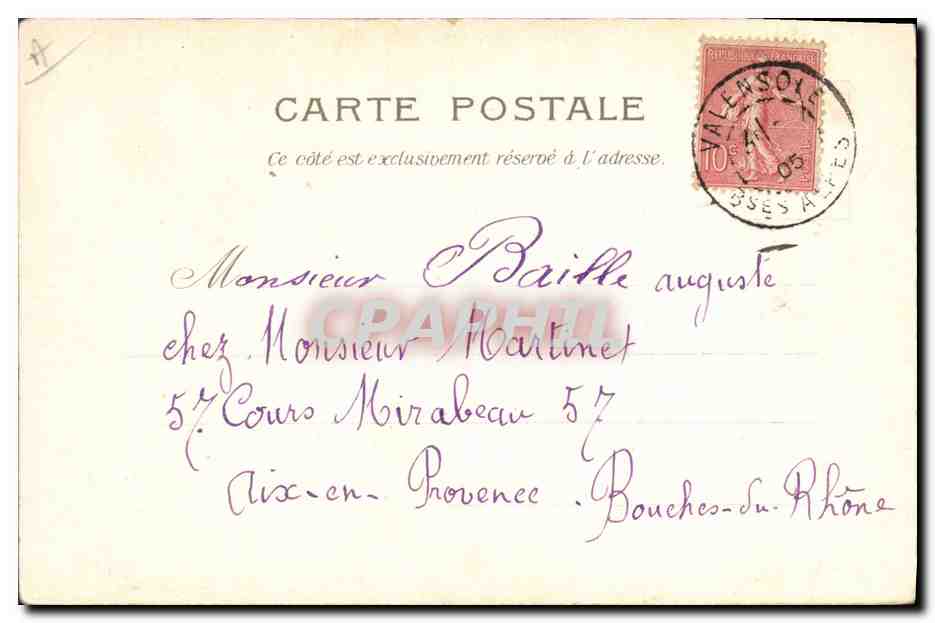 A
CARTE POSTALE
Ce côté est exclusivement réservé à l'adresse.
REPUBLIQUE FRANÇAISE
10c
VALENSOLE
05
BSES ALPES
Monsieur Baille auguste
chez Monsieur Martinet
57 Cours Mirabeau 57
Aix-en-Provence. Bouches-du-Rhône
CPAPHIL